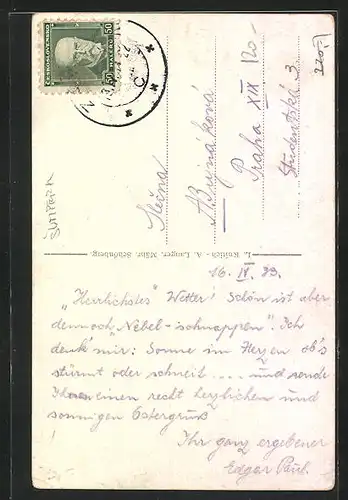 ČESKOSLOVENSKO
50 HALÉŘŮ 50
C
120-
320,-
Slečna
A Bujnáková
Praha XIX
Studentská 3
ŠUMPERK
L. Rohlich - A. Langer, Mähr. Schönberg.
16. IV. 33.
„Herrlichstes" Wetter! Schön ist aber
dennoch „Nebel-schnappen". Ich
denk' mir: Sonne im Herzen ob's
stürmt oder schneit .... und sende
Ihnen einen recht herzlichen und
sonnigen Ostergruß
!
Ihr ganz ergebener
Edgar Paul.